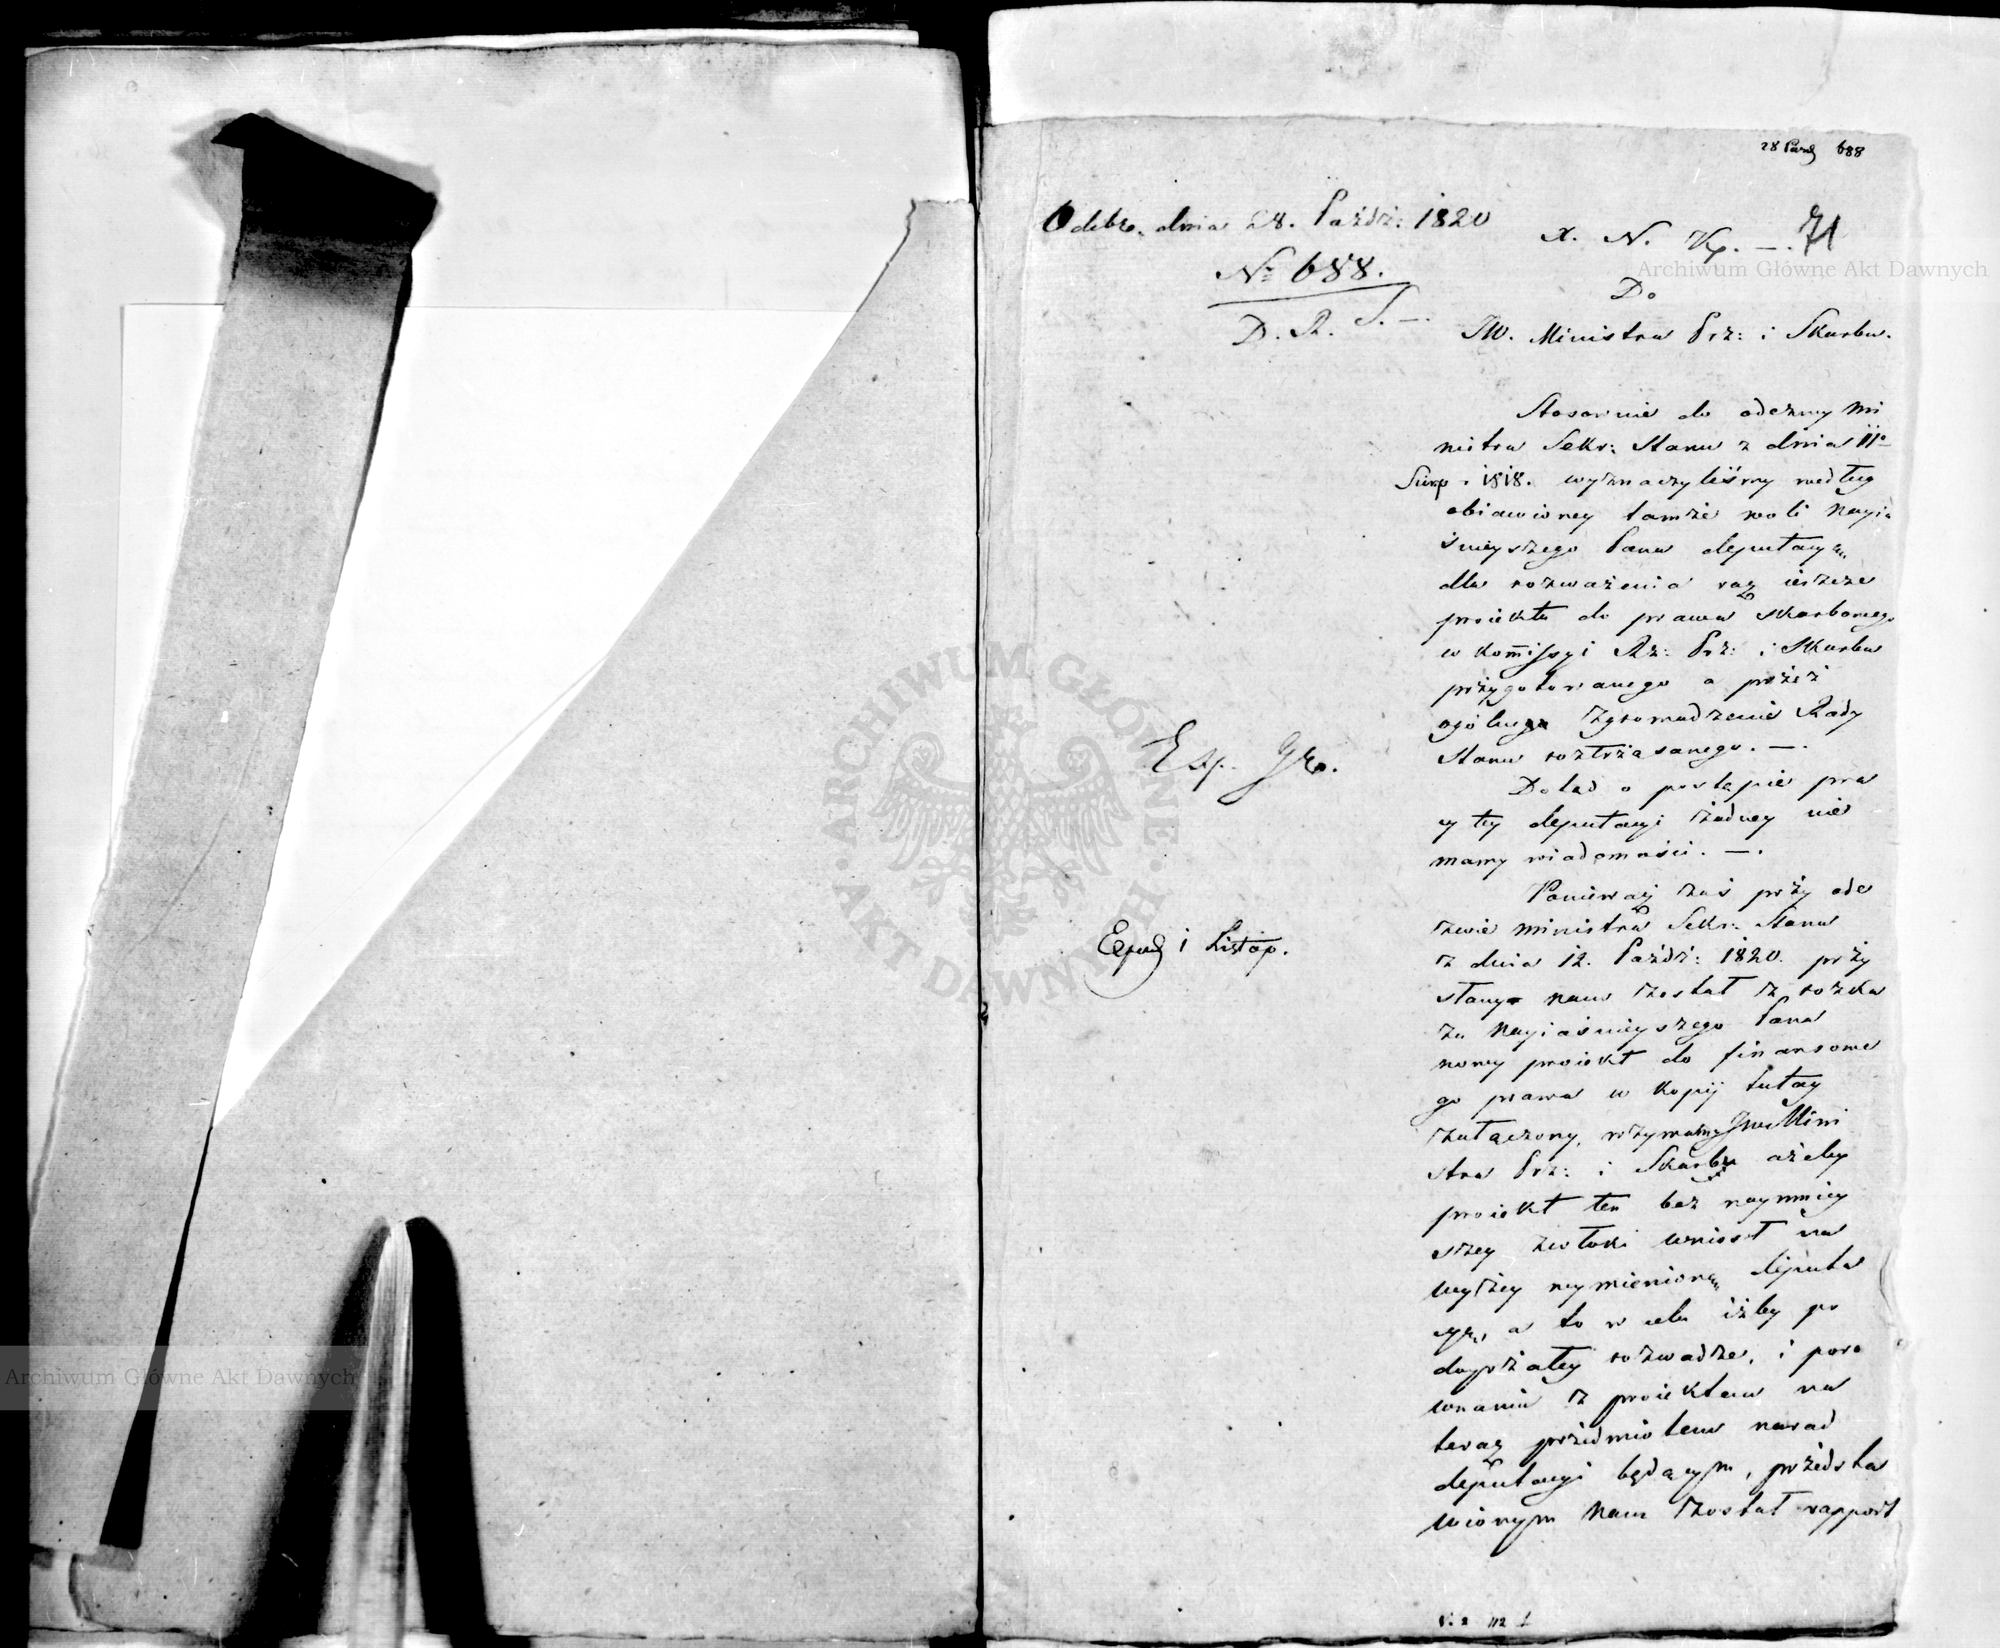 28 Paźd 688
Odebr. dnia 28. Paźdz: 1820
№ 688.
D. R. S. —.
X. N. Kr. —. 71
Do
JW. Ministra Prz: i Skarbu.
Stosownie do odezwy Mi
nistra Sekr: Stanu z dnia 11º
Sierp. 1818. wyznaczyliśmy według
obiawioney tamże woli Nayia
śnieyszego Pana deputacyą
dla rozważenia raz ieszcze
proiektu do prawa skarbowego
w Kommissyi Rz: Prz: i Skarbu
przygotowanego a przez
ogólne Zgromadzenie Rady
Stanu roztrząsanego. —.
Exp. Gr.
Dotąd o postępie pra
cy tey deputacyi żadney nie
mamy wiadomości. —.
Ponieważ zaś przy ode
zwie Ministra Sekr: Stanu
Exped 1 Listop.
z dnia 12. Paźdz: 1820. przy
słany nam został z rozka
zu Nayiaśnieyszego Pana
nowy proiekt do finansowe
go prawa w kopij tutay
załączony, wzywamy JW Mini
stra Prz: i Skarbu ażeby
proiekt ten bez naymniey
szey zwłoki wniosł na
wyżey wymienioną deputa
cyą, a to w celu iżby po
doyrzałey rozwadze, i poró
wnaniu z proiektem na
teraz przedmiotem narad
deputacyi będącym, przedsta
wionym nam został rapport
Archiwum Główne Akt Dawnych
Archiwum Główne Akt Dawnych
ARCHIWUM GŁÓWNE AKT DAWNYCH